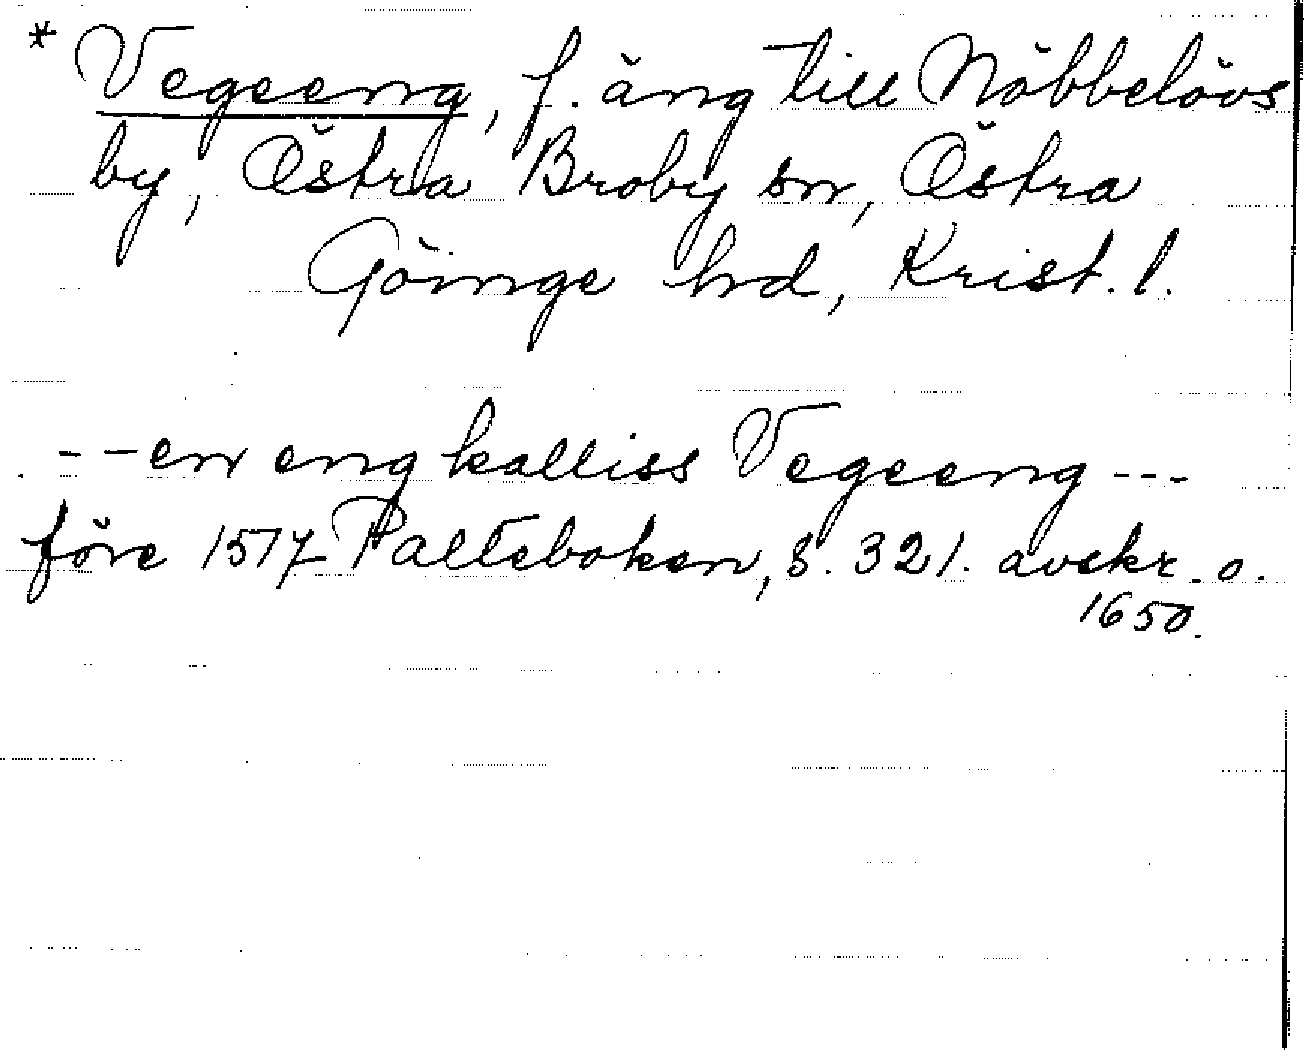 * Vegeeng, f. äng till Nöbbelövs
by, Östra Broby sn, Östra
Göinge hd, Krist. l.
--- en eng kalliss Vegeeng ---
före 1517 Palteboken, s. 321. avskr. o.
1650.